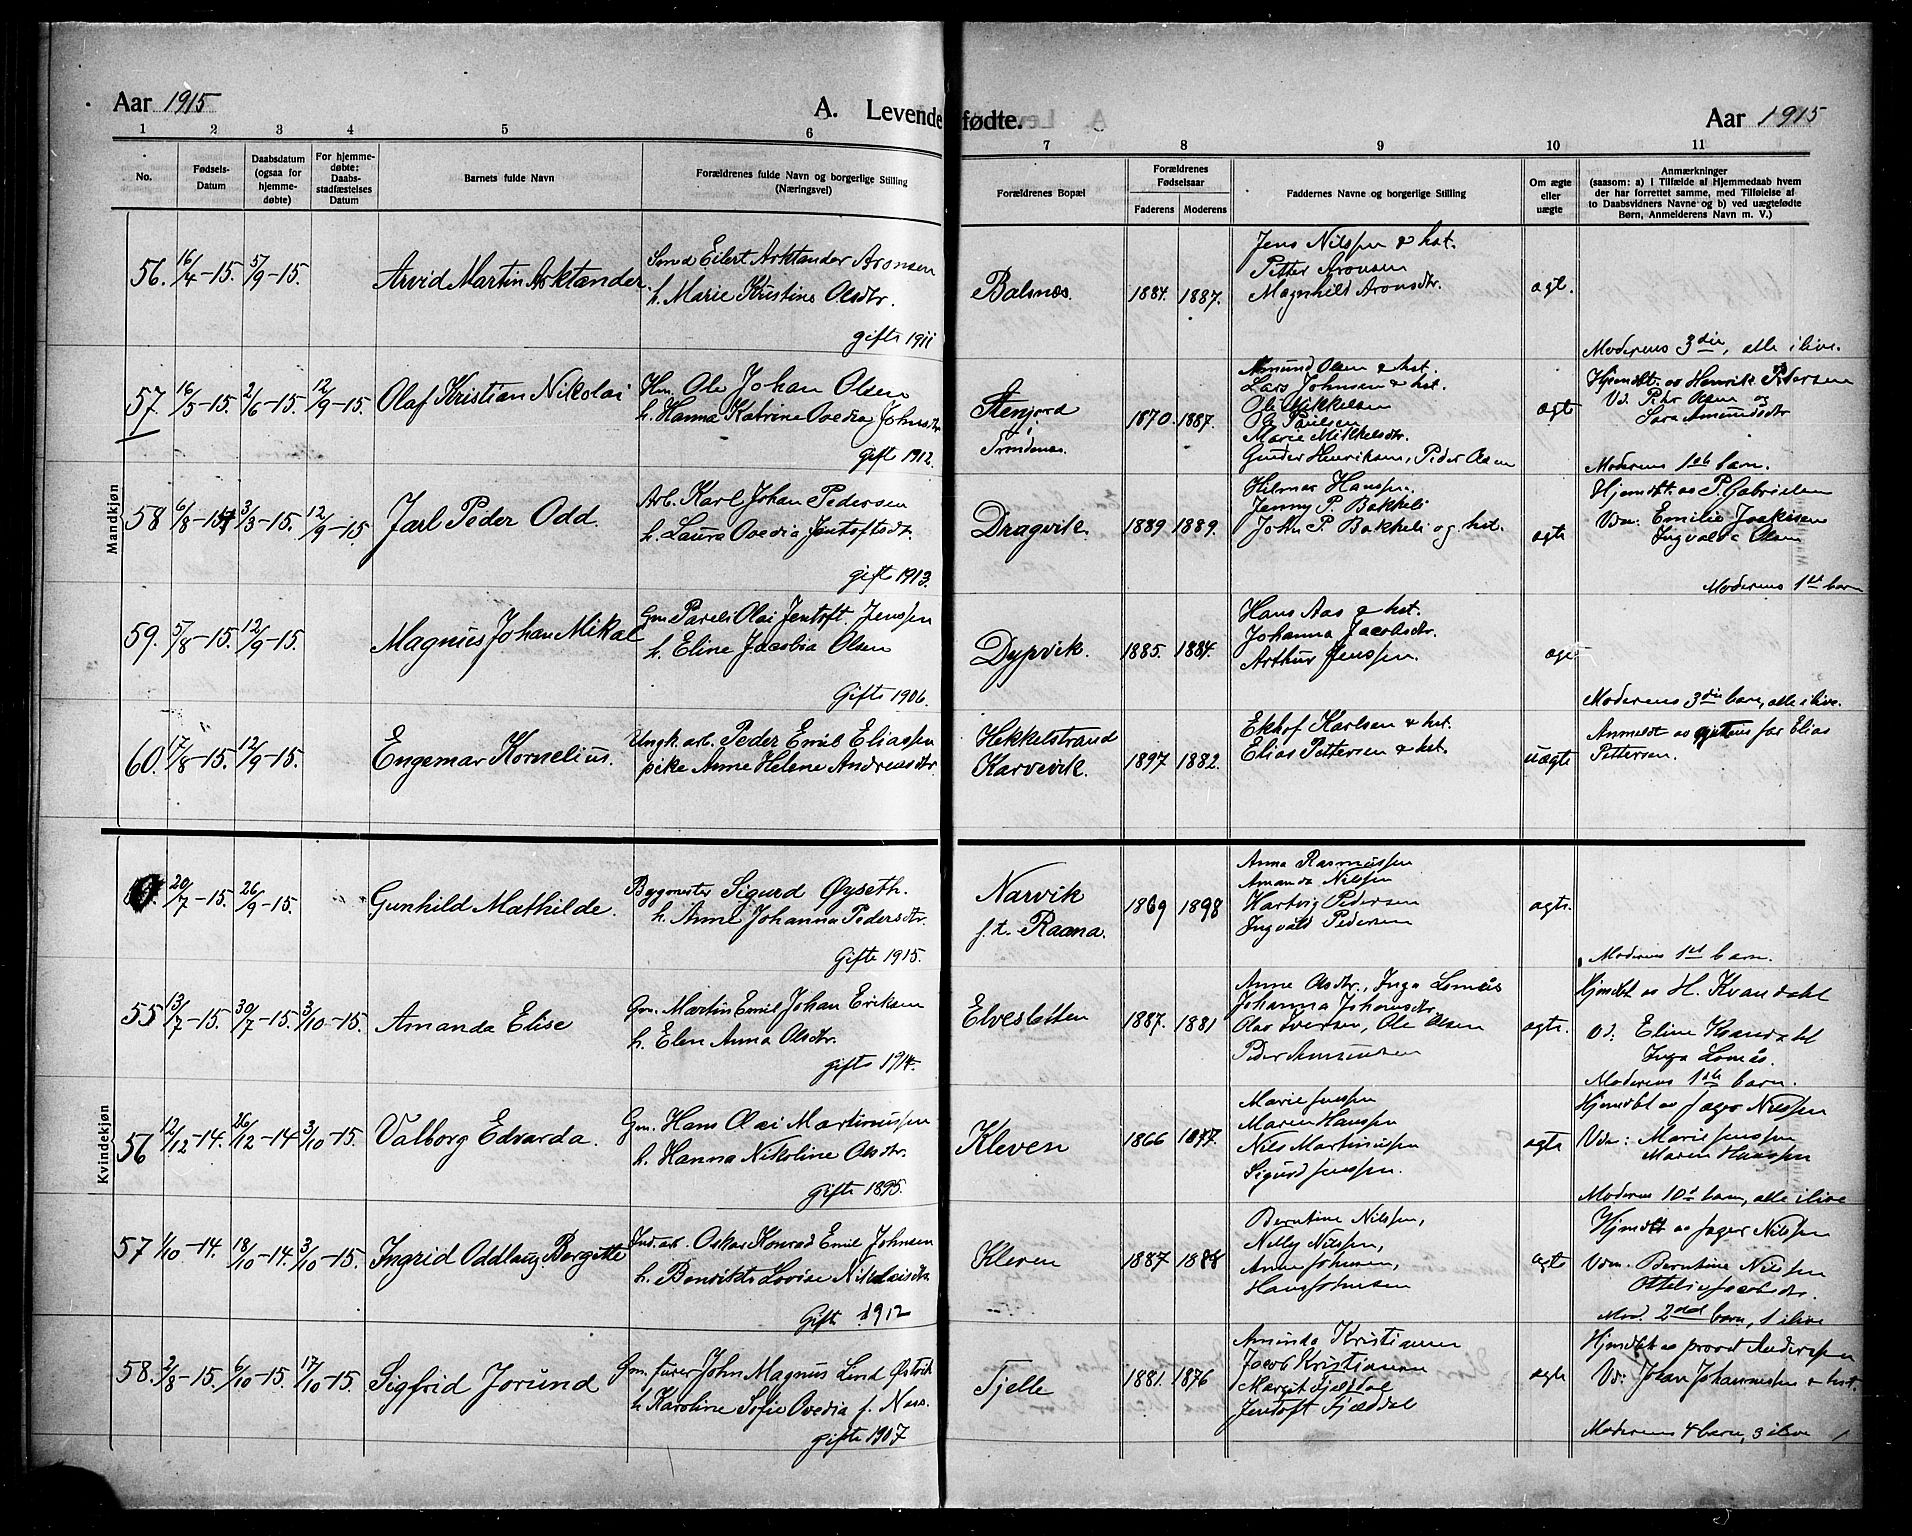 Aar 1915
A. Levende fødte.
Aar 1915
1 2 3 4 5 6 7 8 9 10 11
No.
Fødsels-
Datum
Daabsdatum
(ogsaa for
hjemme-
døbte)
For hjemme-
døbte:
Daabs-
stadfæstelses
Datum
Barnets fulde Navn
Forældrenes fulde Navn og borgerlige Stilling
(Næringsvei)
Forældrenes Bopæl
Forældrenes
Fødselsaar
Faderens Moderens
Faddernes Navne og borgerlige Stilling
Om ægte
eller
uægte
Anmærkninger
(saasom: a) i Tilfælde af Hjemmedaab hvem
der har forrettet samme, med Tilføielse af
to Daabsvidners Navne og b) ved uægtefødte
Børn, Anmelderens Navn m. V.)
Mandkjøn
56. 16/4-15. 5/9-15.
Arvid Martin Arktander.
Smed Eilert Arktander Aronsen
h. Marie Kristine Olsdtr.
gifte 1911
Balsnes.
1884. 1887.
Jens Nilssen & hst.
Petter Aronsen
Magnhild Aronsdtr.
ægt.
Moderens 3die, alle ilive.
57. 16/5-15. 2/6-15. 12/9-15.
Olaf Kristian Nikolai
Hm. Ole Johan Olsen
h. Hanna Katrine Ovedia Johnsdtr
gift 1912.
Stenjord
i
Trondenes.
1870. 1887.
Amund Olsen & hst.
Lars Johnsen & hst.
Ole Mikkelsen
Ole Paulsen
Marie Mikkelsdtr.
Gunder Henriksen, Peder Olsen
ægte
Hjemdbt. av Henrik Pedersen
Vd. Petr Olsen og
Sara Amundsdtr
Moderens 1ste barn.
58 6/8-14. 3/3-15. 12/9-15.
Jarl Peder Odd.
Arb. Karl Johan Pedersen
h. Laura Ovedia Jentoftsdt.
gifte 1913.
Dragvik.
1889 1889.
Hilmar Hanssen.
Jenny P. Bakkeli
Joh. P. Bakkeli og hst.
ægte
Hjemdbt av P. Gabrielsen
Vdn: Emilie Joakisen
Ingvalda Olsen
Moderens 1st barn
59. 5/8-15. 12/9-15.
Magnus Johan Mikal
Gm Pareli Olai Jentoft Jenssen
h. Eline Jacobia Olsen
Gifte 1906.
Dypvik.
1885. 1884.
Hans Aas & hst.
Johanna Jacobsdtr.
Arthur Jenssen.
ægt
Moderens 3die barn, alle ilive.
60. 17/8-15. 12/9-15.
Engemar Kornelius.
Ungk. arb. Peder Emil Eliassen
pike Anne Helene Andreasdtr
Hekkelstrand
Karvevik.
1897 1882.
Ekhof Karlsen & hst.
Elias Pettersen & hst.
uægte
Anmeldt av guttens far Elias
Pettersen.
Kvindekjøn
20/7-15. 26/9-15.
Gunhild Mathilde.
Byggmester Sigurd Øyseth.
h. Anne Johanna Pedersdtr.
Gifte 1915.
Narvik
f.t. Raana.
1869 1898
Anna Rasmussen
Amanda Nilsen
Hartvig Pedersen
Ingvald Pedersen
ægte.
Moderens 1st barn.
55 13/7-15. 30/7-15. 3/10-15.
Amanda Elise
Gm. Martin Emil Johan Eriksen
h. Elen Anna Olsdtr.
gifte 1914.
Elvesletten
1887. 1881
Anne Olsdtr., Inga Lomås
Johanna Johnsdtr.
Olav Iversen, Ole Olsen
Peder Amundsen
ægte.
Hjemdbt av H. Kvandahl
Vd: Eline Kvandahl
Inga Lomås.
Moderens 1ste barn.
56 12/12-14. 26/12-14 3/10-15.
Valborg Edvarda.
Gm. Hans Olai Martinussen
h. Hanna Nikoline Olsdtr.
gifte 1895.
Kleven
1866 1877.
Marie Jenssen
Maren Hanssen
Nils Martinussen
Sigurd Jenssen.
ægte
Hjemdbt av Jager Nilssen
Vdn: Marie Jenssen
Maren Hanssen
Moderens 10d barn, alle ilive
57 1/10-14. 18/10-14. 3/10-15.
Ingrid Oddlaug Borgitte
Ind. arb. Oskar Konrad Emil Johnsen
h. Bendikte Lovise Nikolaisdtr
Gifte 1912
Kleven
1887 1888
Berntine Nilssen,
Nelly Nilssen,
Anne Johnsen,
Hans Johnsen
ægte
Hjemdbt av Jager Nilssen
Vdn. Berntine Nilssen
Ottelie Jacobsdtr.
Mod. 2det barn, 1 ilive
58. 2/8-15. 6/10-15. 17/10-15.
Sigfrid Jorund
Gm. furer John Magnus Lind Østvik
h. Karoline Sofie Ovedia f. Næss.
gifte 1907
Tjelle
1881. 1876
Aminda Kristiansen
Jacob Kristiansen
Margit Fjelldal
Jentoft Fjælldal
ægte
Hjemdbt av provst Anderssen
Vd: Johan Johannessen & hst.
Moderens 4 barn, 3 ilive